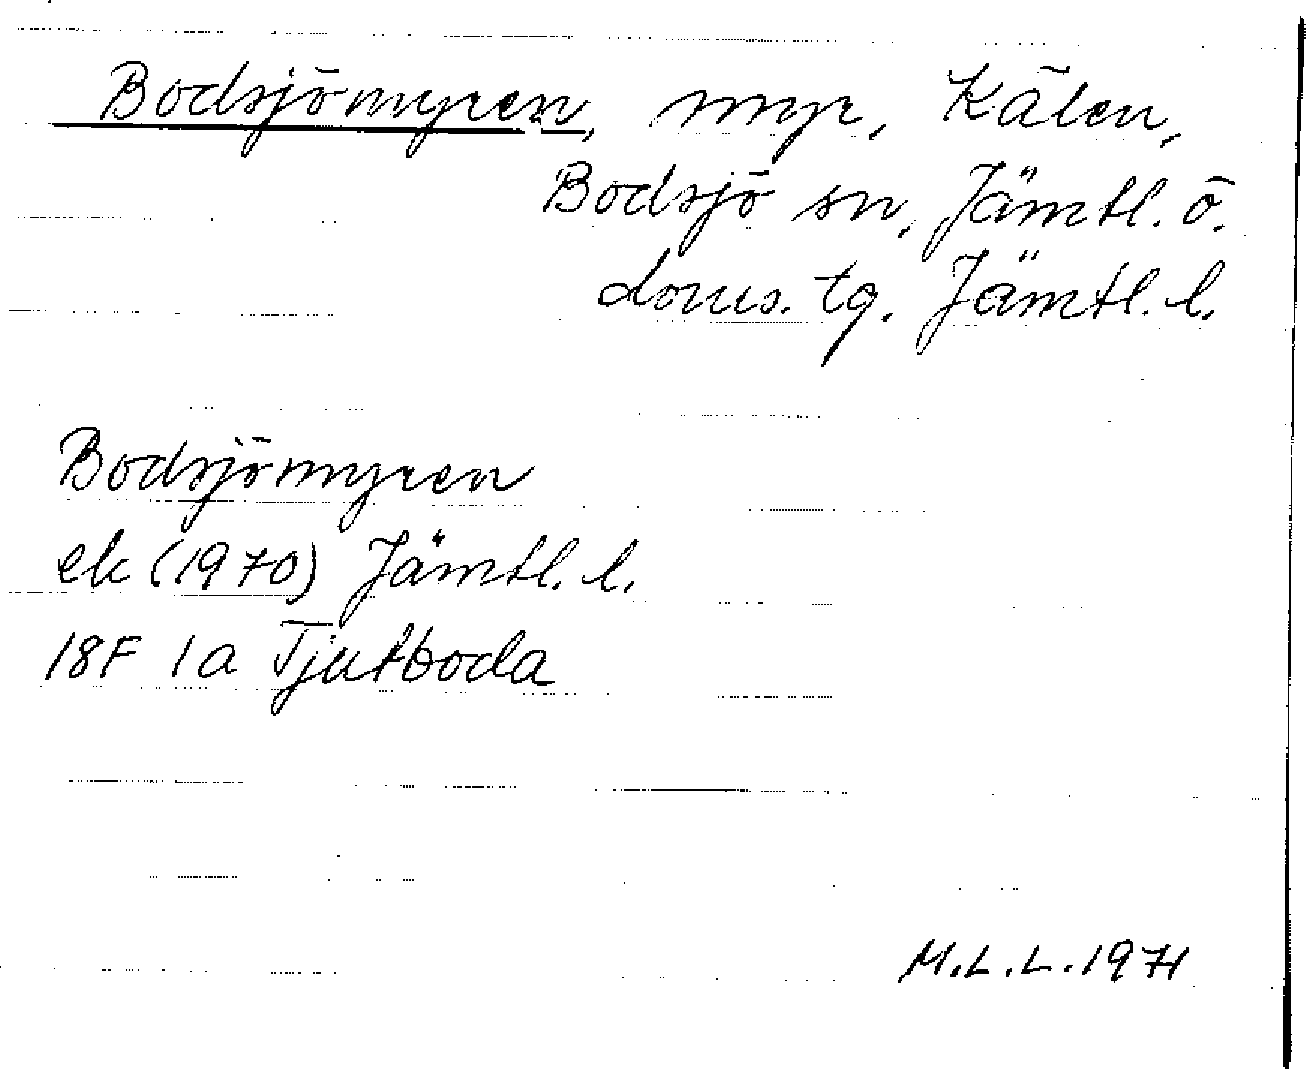 Bodsjömyren, myr, Kälen,
Bodsjö sn, Jämtl. ö.
doms. tg. Jämtl. l.
Bodsjömyren
ek (1970) Jämtl. l.
18F 1a Tjutboda
M.L.L. 1971